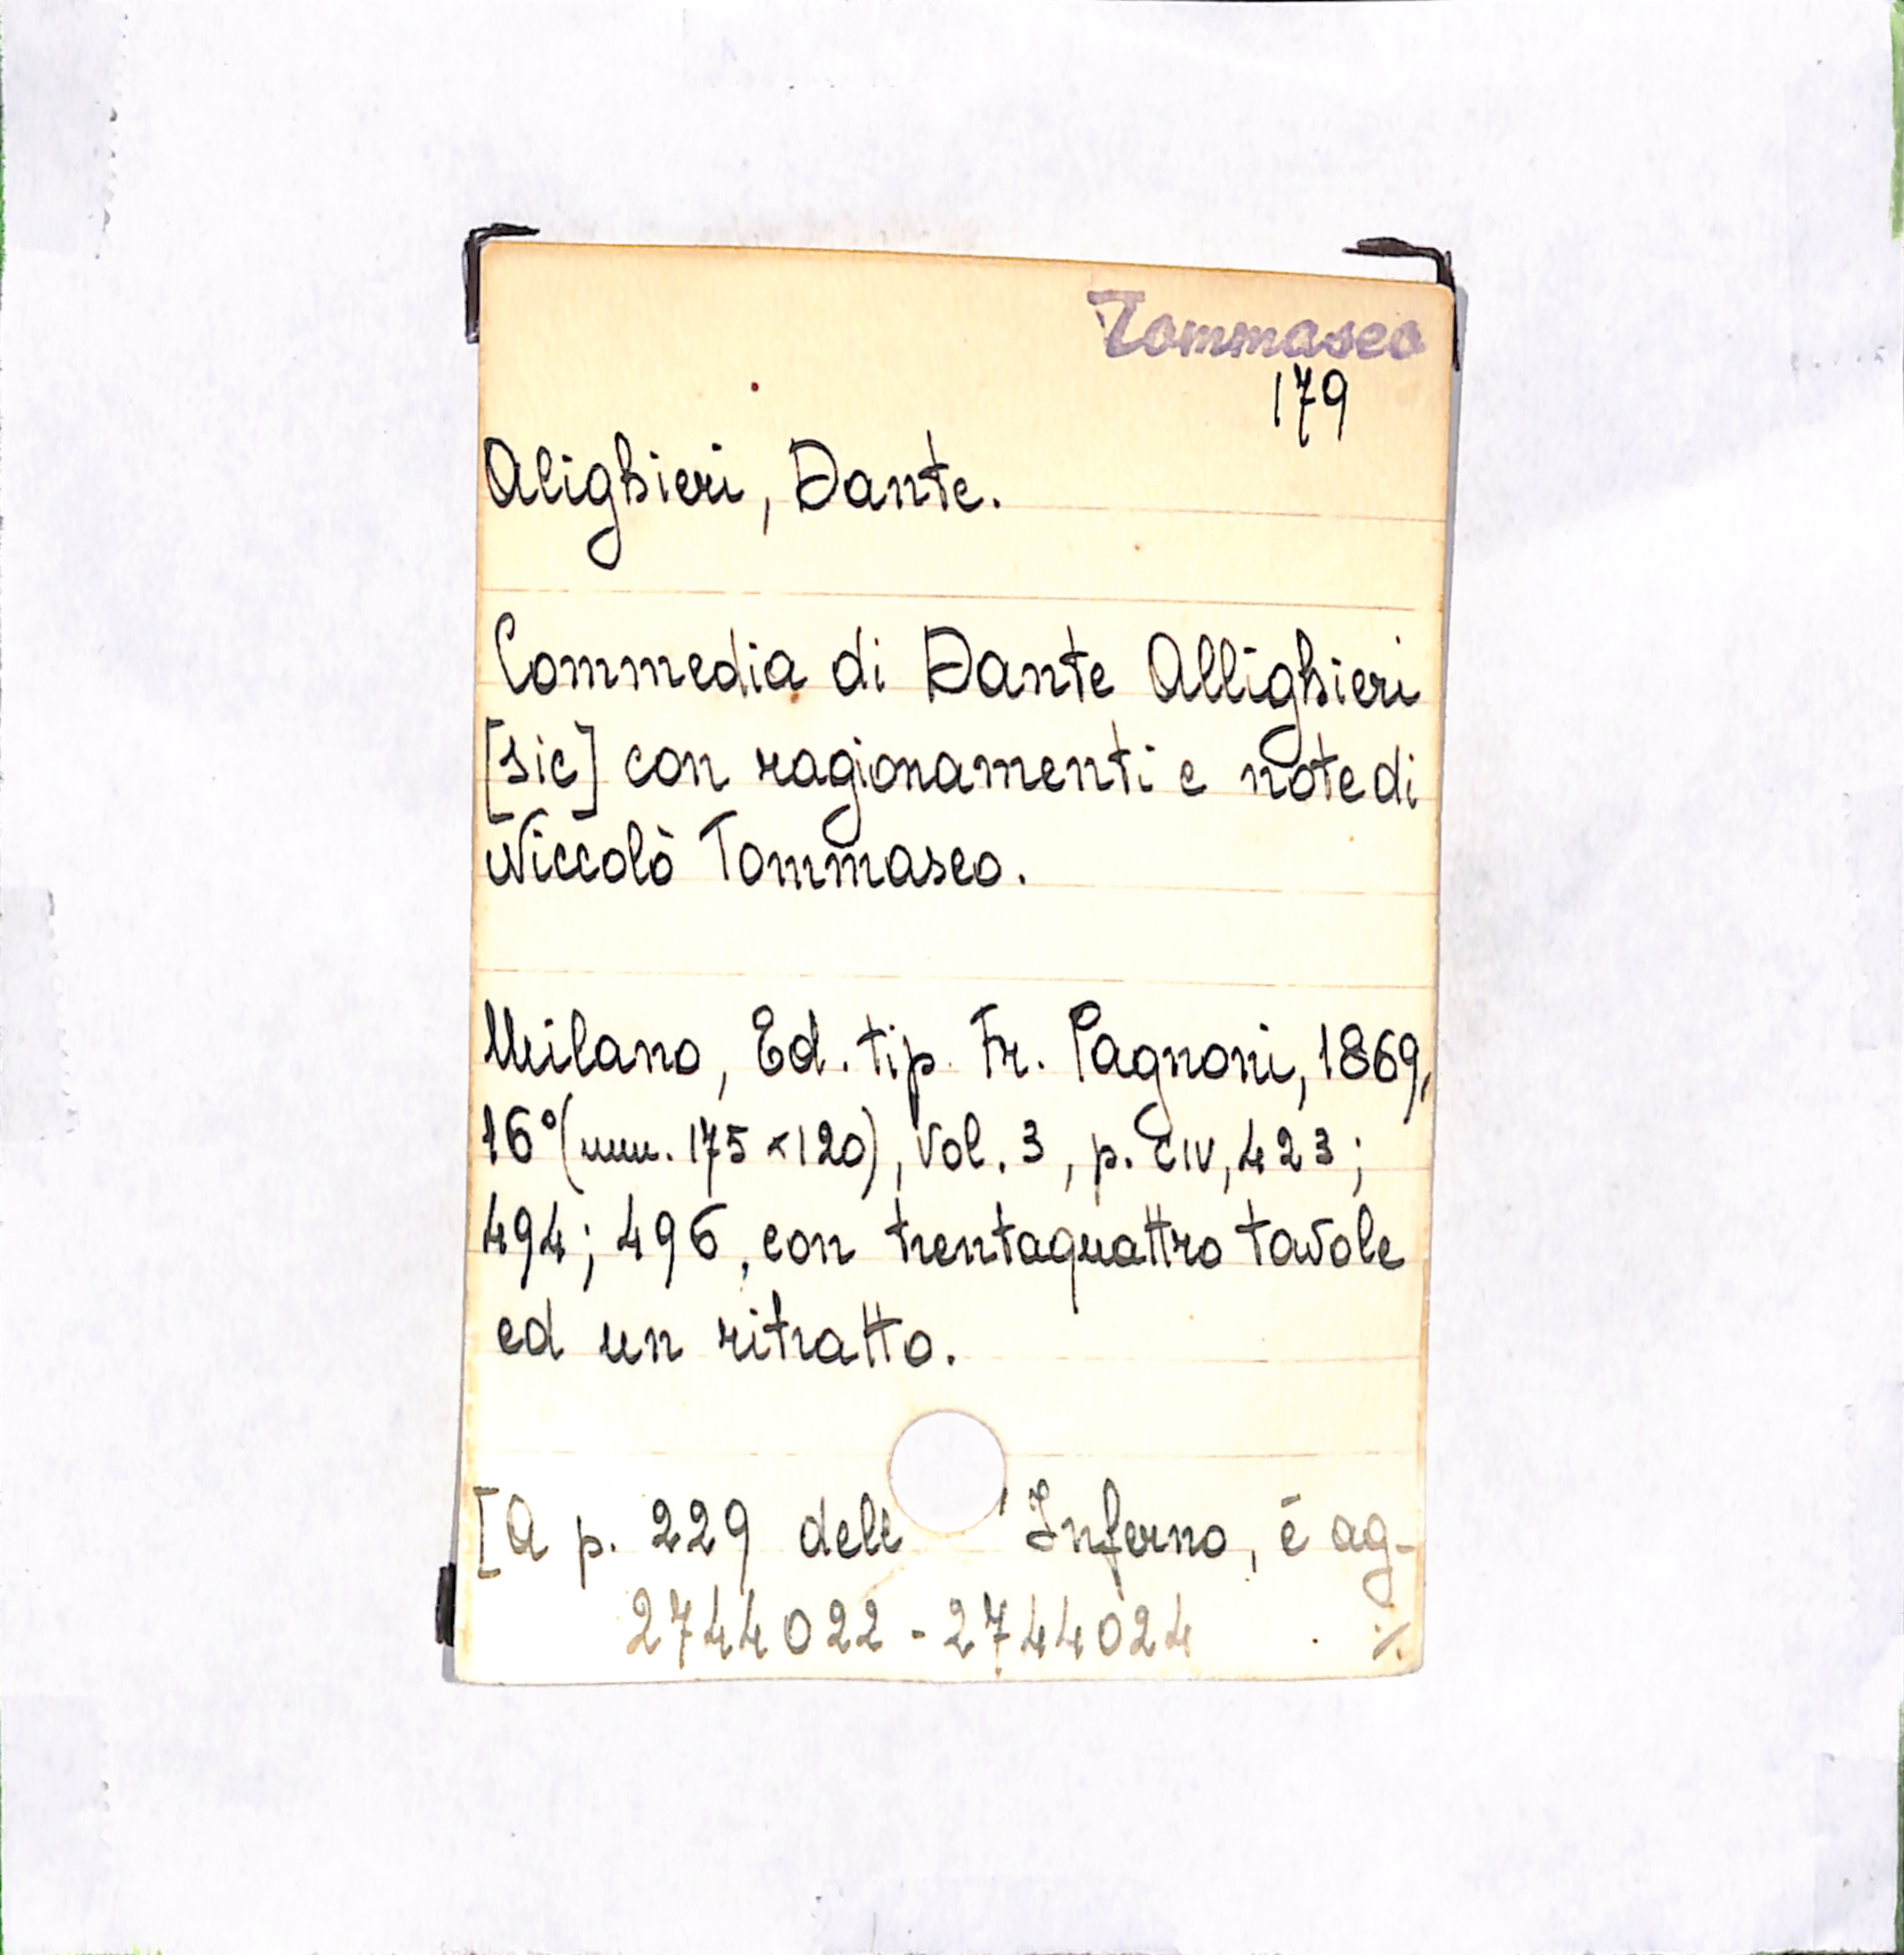 Tommaseo
179
Alighieri, Dante.
Commedia di Dante Allighieri
[sic] con ragionamenti e note di
Niccolò Tommaseo.
Milano, Ed. tip. Fr. Pagnoni, 1869,
16° (mm. 175 x 120), Vol. 3, p. CIV, 423;
494; 496, con trentaquattro tavole
ed un ritratto.
[A p. 229 dell'Inferno, è ag-
2744022 - 2744024 ./.